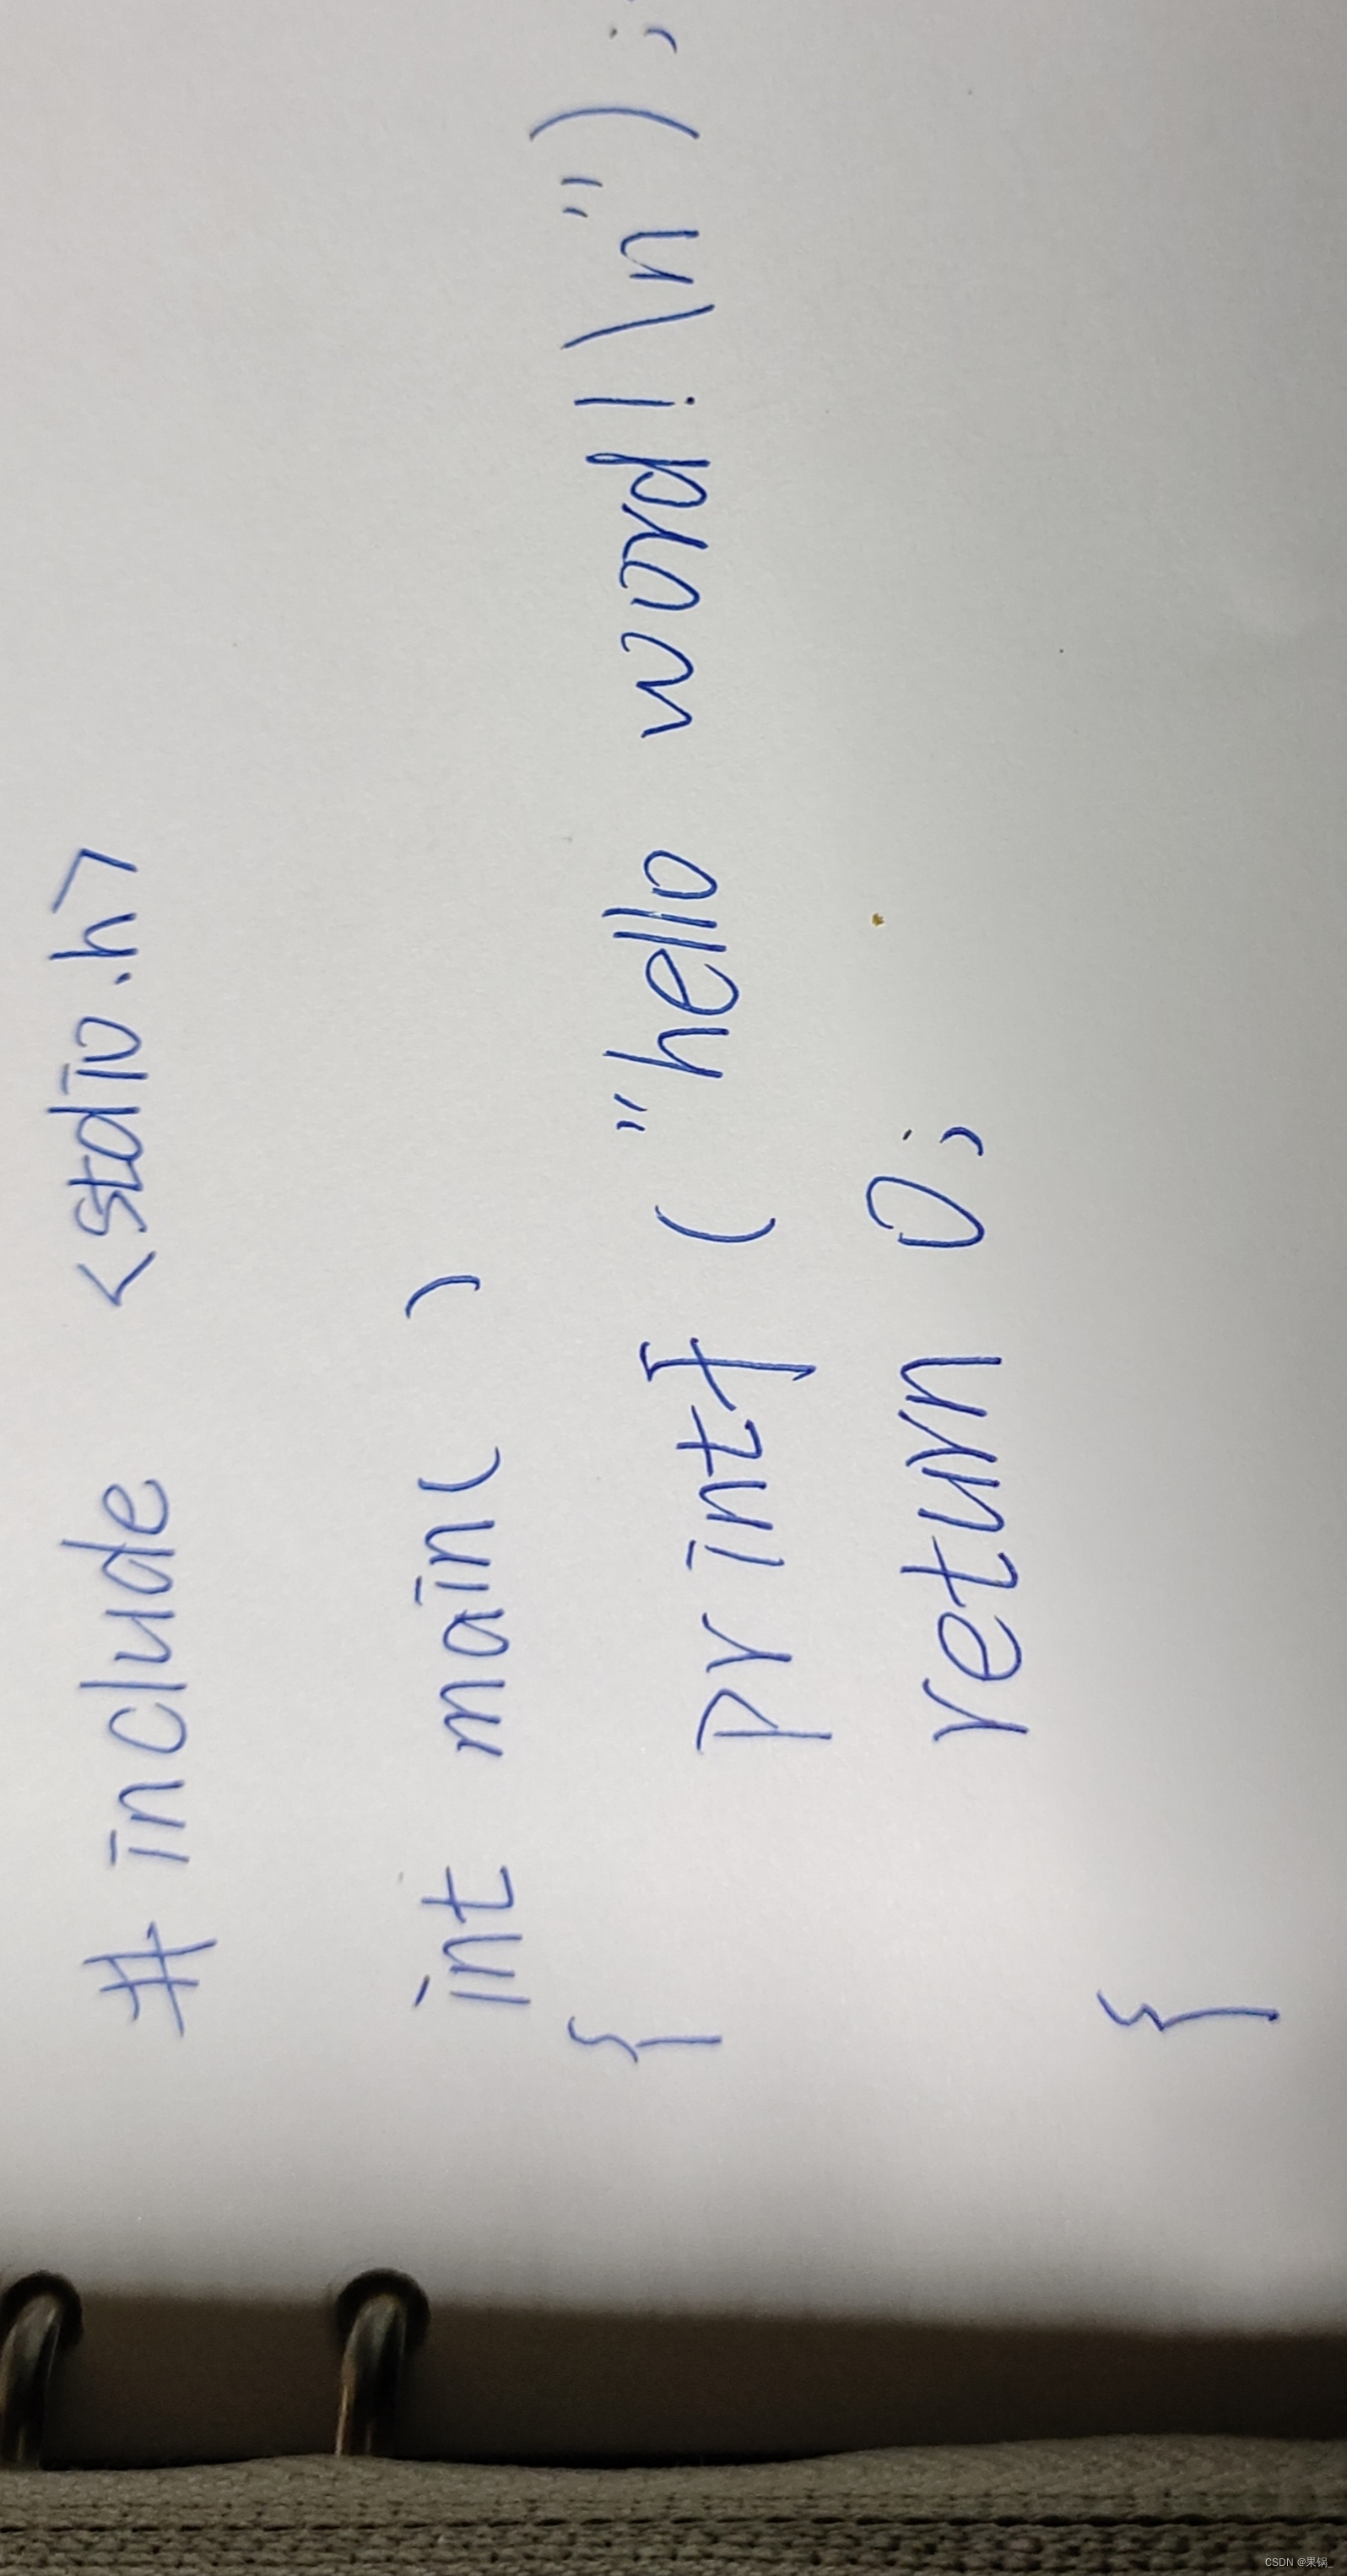 # include <stdio.h>
int main( )
{
printf ("hello word!\n");
return 0;
}
CSDN @果锅_